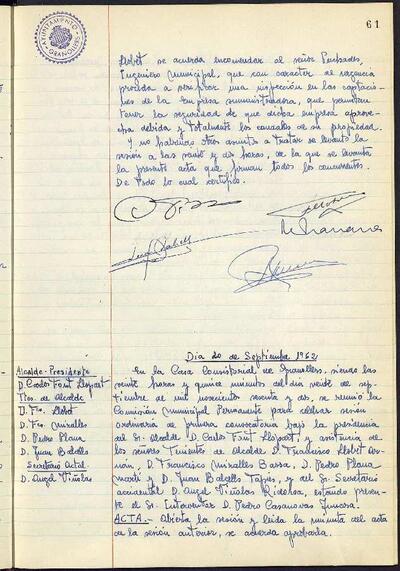 AYUNTAMIENTO
GRANOLLERS
61
Llobet se acuerda encomendar al señor
Ingeniero Municipal, que con caracter de urgencia
proceda a efectuar una inspección en las captacio-
nes de la Empresa suministradora, que permitan
tener la seguridad de que dicha empresa aprove-
cha debida y totalmente los caudales de su propiedad.
Y no habiendo otros asuntos a tratar se levanta la
sesión a las veinte y dos horas, de la que se levanta
la presente acta que firman todos los concurrentes.
De todo lo cual certifico.
Dia 20 de Septiembre 1962
Alcalde-Presidente
D. Carlos Font Llopart
Ttes. de Alcalde
D. Fco. Llobet
D. Fco. Miralles
D. Pedro Plana
D. Juan Batallo
Secretario Actal.
D. Angel Viñolas
En la Casa Consistorial de Granollers, siendo las
veinte horas y quince minutos del dia veinte de sep-
tiembre de mil novecientos sesenta y dos, se reunió la
Comisión Municipal Permanente para celebrar sesión
ordinaria de primera convocatoria bajo la presidencia
del Sr. Alcalde D. Carlos Font Llopart, y asistencia de
los señores Tenientes de Alcalde D. Francisco Llobet Ar-
nán, D. Francisco Miralles Barsa, D. Pedro Plana
Martí y D. Juan Batallo Tapies, y del Sr. Secretario
accidental D. Angel Viñolas Riderosa, estando presen-
te el Sr. Interventor D. Pedro Casanovas
ACTA.- Abierta la sesión y leida la minuta del acta
de la sesión anterior, se acuerda aprobarla.